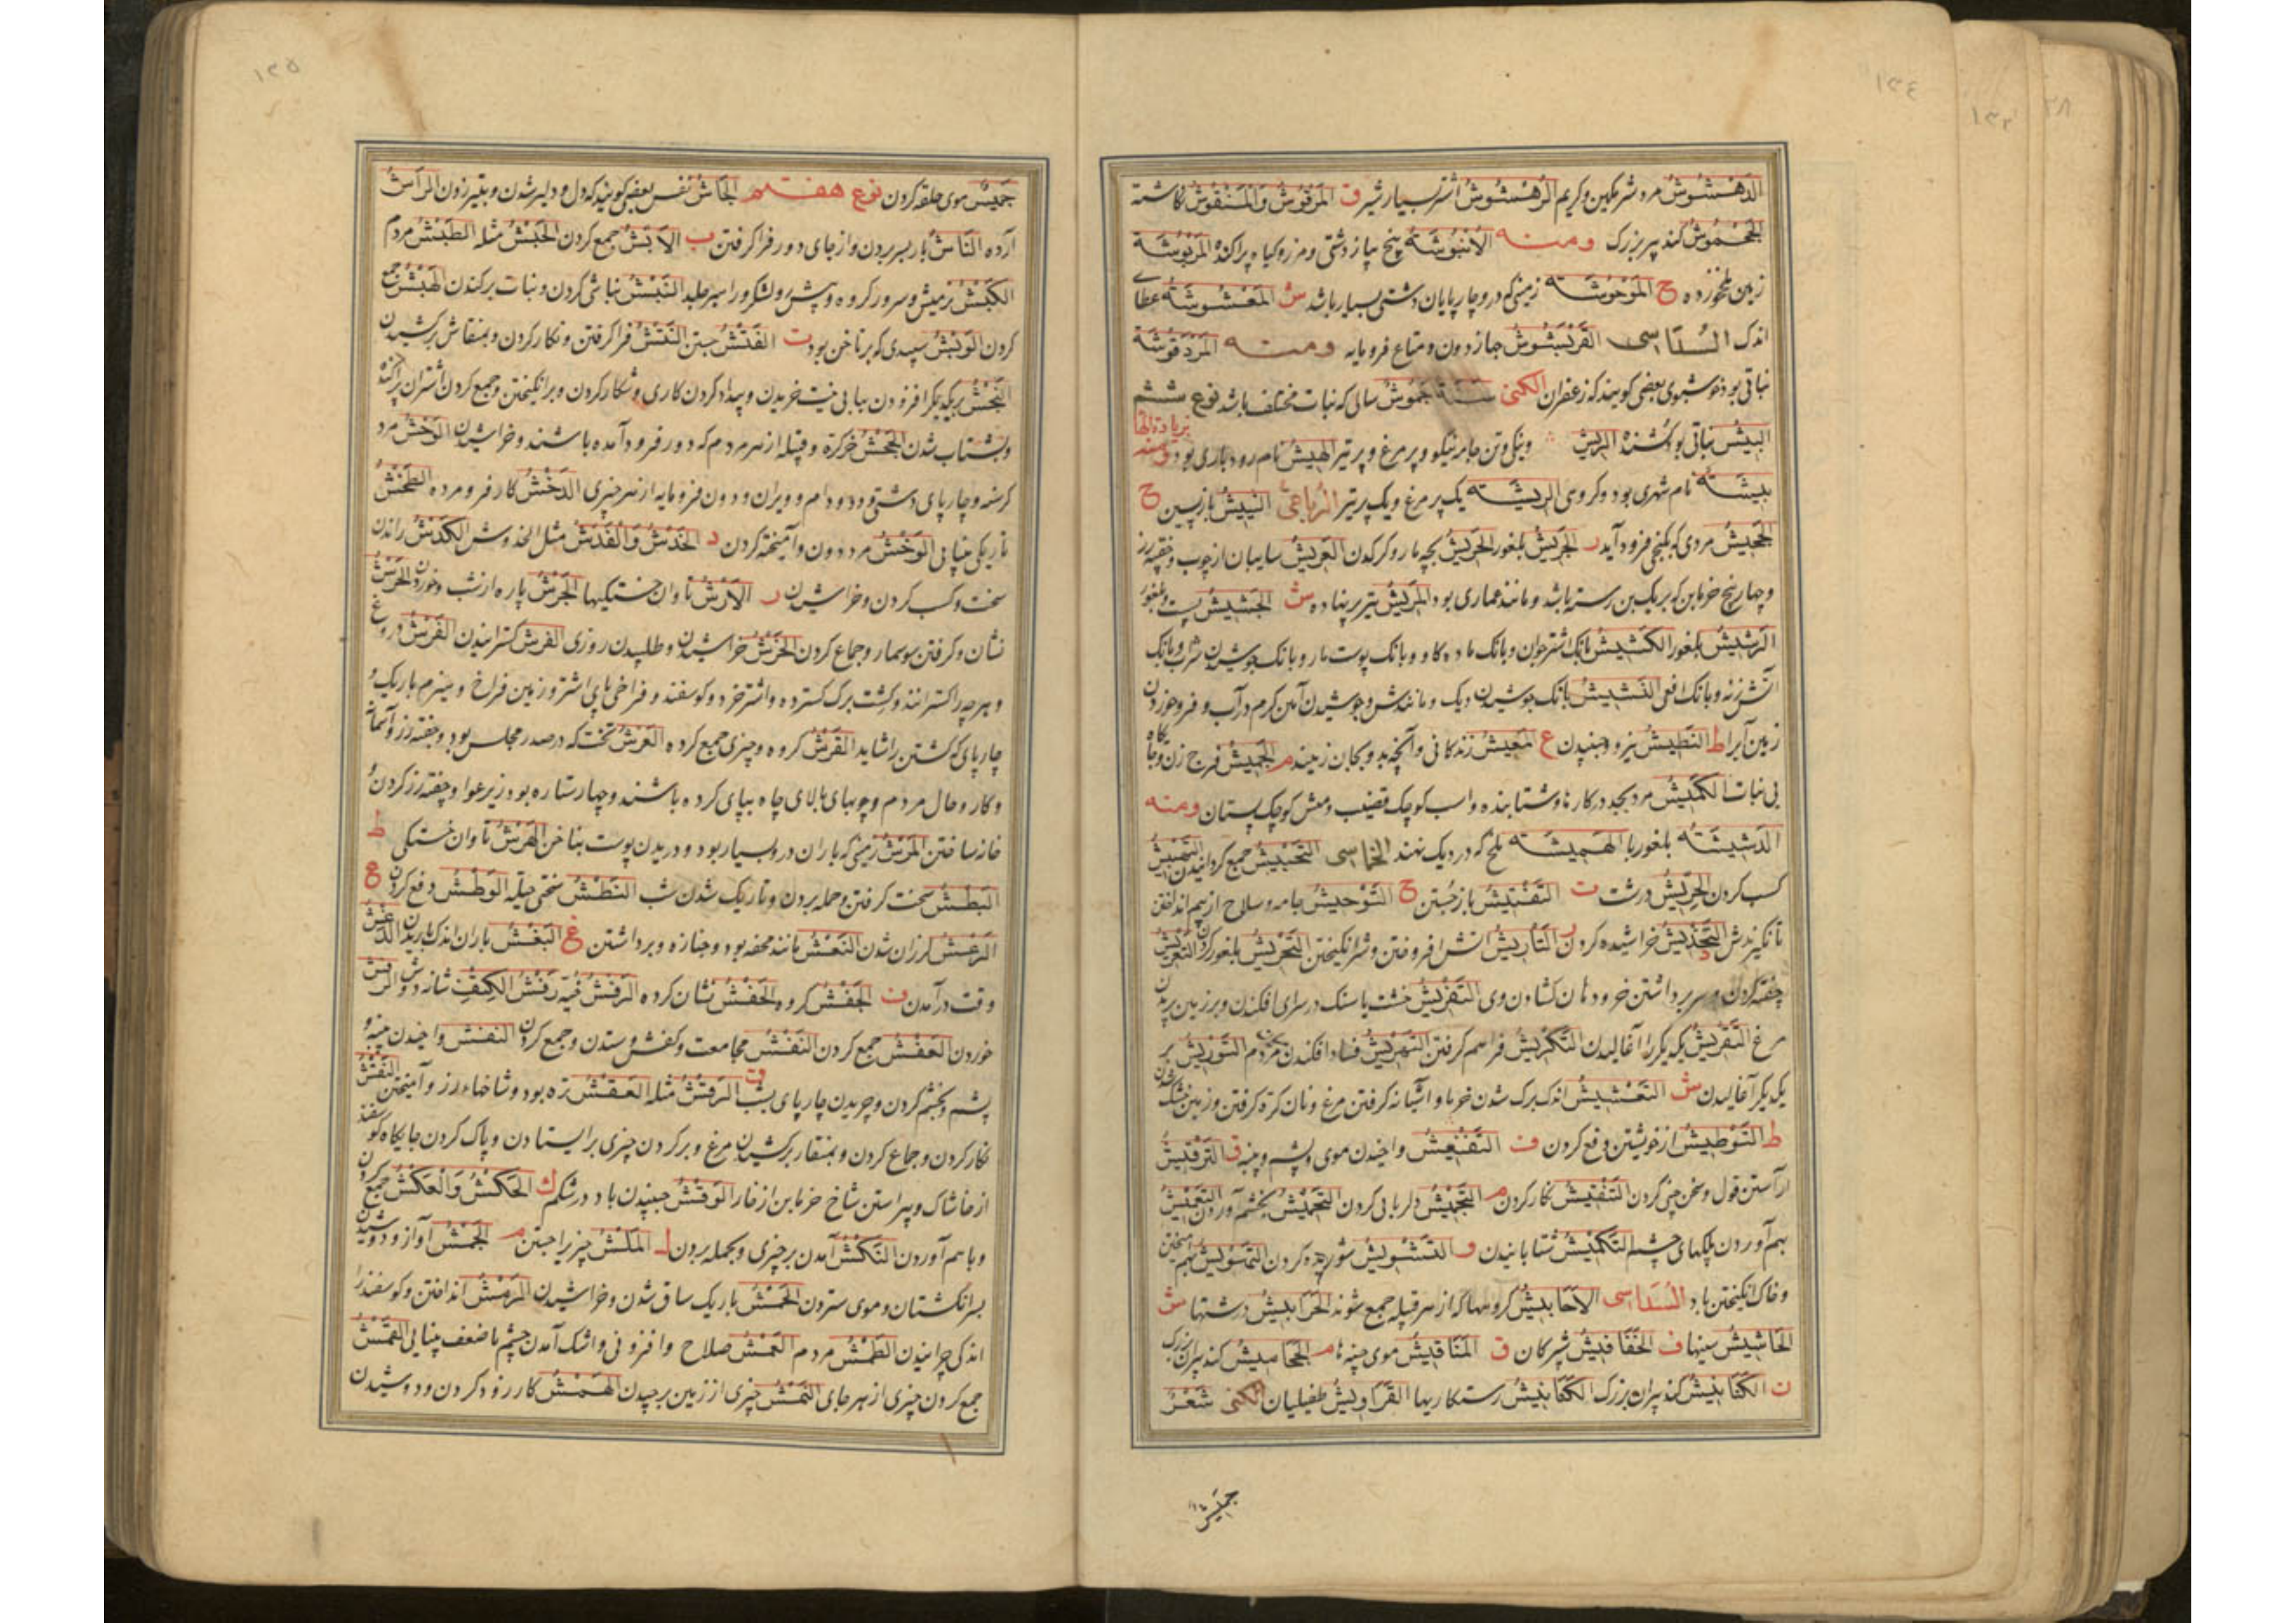 ١٣٤
الدَهْشُوشُ مرد شرمکین و کریم الرُهْشُوشُ اشتر بسیار شیر ق المَرقُوشُ وَالمَنقُوشُ نکاشته
الجَحْمُوشُ کنده پیر بزرک ومنه الاُنبُوشَة بیخ پیاز دشتی و مرز و کیاه پراکنده المَرْبُوشَة
زمین ملخ زده ح المَوحُوشَة زمینی که درو چارپایان دشتی بسیار باشد ش المَغْشُوشَة عطای
اندک السُدَاسی القَرنَبُشُوشُ جهاز دون و متاع فرومایه ومنه المَرْدَقُوشَة
نباتی بود خوشبوی بعضی کویند که زعفران الکنی سَنَة جَمُوشُ سالی که نبات مختلف باشد نوع ششم
البِیشُ نباتی بود کُشنده الرِیشُ ونیکوتن جامه نیکو و پر مرغ و پر تیر الهِیشُ نام رودباری بود ومنه
بِیشَة نام شهری بود و کروی الرِیشَة یک پر مرغ و یک پر تیر الرُباعی النَئِیشُ بازپسین ح
الجَحِیشُ مردی که بکنجی فرود آید ر الجَرِیشُ بلغور الحَرِیشُ بچه مار و کرکدن العَرِیشُ سایبان از چوب و چفته رز
و چهار پنج خرمابن که بر یک بن رسته باشد و مانند عماری بود المَرِیشُ تیر پر نهاده ش الجَشِیشُ پست و بلغور
الرَشِیشُ بلغور الکَشِیشُ بانک اشتر جوان و بانک ماده کاو و بانک پوست مار و بانک جوشیدن شراب و بانک
آتش زنه و بانک افعی النَشِیشُ بانک جوشیدن دیک و مانندش و جوشیدن آهن کرم در آب و فرو خوردن
زمین آبرا ط النَطِیشُ نیرو و جنبیدن ع المَعِیشُ زندکانی و آنچه بدو بجان زیند م الجَمِیشُ فرج زن و جایکاه
بی نبات الکَمِیشُ مرد بجد در کارها و شتابنده و اسب کوچک قضیب و میش کوچک پستان ومنه
الدَشِیشَة بلغور با الهَمِیشَة ملخ که در دیک نهند الخماسی التَحْبِیشُ جمع کردانیدن التَخبِیشُ
کسب کردن الحِرّیشُ درشت ت التَفْتِیشُ باز جُستن ح التَوْحِیشُ جامه و سلاح از بیم انداختن
تا نکیرندش التَخْدِیشُ خراشیده کردن ر التَأرِیشُ آتش افروختن و شر انکیختن التَجرِیشُ بلغور کردن التَعْرِیشُ
چفته کردن و سر برداشتن خر و دهان کشادن وی التَفْرِیشُ خشت یا سنک در سرای افکندن و بر زمین پریدن
مرغ التَقْرِیشُ یکدیکر را آغالیدن التَکْرِیشُ فراهم کرفتن التَهرِیشُ فساد افکندن میان مردم التَوْرِیشُ بر
یکدیکر آغالیدن ش التَعْشِیشُ اندک برک شدن خرما و آشیانه کرفتن مرغ و نان کره کرفتن و زمین خشک شدن
ط التَوطِیشُ از خویشتن دفع کردن ف التَنْفِیشُ واخیدن موی و پشم و پنبه ق التَرقِیشُ
آراستن قول و سخن چنی کردن التَنْقِیشُ نکار کردن م التَجْمِیشُ دلربایی کردن التَحْمِیشُ بخشم آوردن التَغْمِیشُ
بهم آوردن پلکهای چشم التَکْمِیشُ شتابانیدن و التَشْوِیشُ شوریده کردن التَهْوِیشُ بهم آمیختن
و خاک انکیختن باد السُدَاسی الاَحَابِیشُ کروهها که از هر قبیله جمع شوند الحَرَابِیشُ درشتها ش
الحَاشِیشُ سینها ف الخَفَافِیشُ شپرکان ق المَنَاقِیشُ موی چینه ها م الجَحَامِیشُ کنده پیران بزرک
ن الکَنَابِیشُ کنده پیران بزرک العَکَابِیشُ رستکاریها القَرَاوِیشُ طفیلیان الکنی شَعْرٌ
جمیش
١٣٥
جَمِیشٌ موی حلقه کردن نوع هفتم الجَأشُ نفس بعضی کویند که دل و دلیر شدن و بتیر زدن الرَأشُ
آرده النَأشُ بار بسر بردن و از جای دور فرا کرفتن ب الاَبْشُ جمع کردن الحَبْشُ مثله الطَبْشُ مردم
الکَبْشُ نر میش و سرور کروه و پیش رو لشکر و را سیر جلد النَبْشُ نباشی کردن و نبات برکندن الهَبْشُ جمع
کردن الوَبْشُ سپیدی که بر ناخن بود ت الفَتْشُ جستن النَتْشُ فرا کرفتن و نکار کردن و بمنقاش برکشیدن
النَجْشُ بر یکدیکر افزودن بها بی نیت خریدن و پیدا کردن کاری و شکار کردن و برانکیختن و جمع کردن اشتران پراکنده
و بشتاب شدن الجَحْشُ خرکره و قبیله از هر مردم که دور فرود آمده باشند و خراشیدن الوَحْشُ مرد
کرسنه و چارپای دشتی و دد و دام و ویران و دون فرومایه از هر چیزی الدَخْشُ کار فرو مرده الطَخْشُ
تاریکی بینایی الوَخْشُ مرد دون و آمیخته کردن د الخَدْشُ وَالقَدْشُ مثل الخدوش الکَدْشُ راندن
سخت و کسب کردن و خراشیدن ر الاَرْشُ تاوان خستکیها الجَرْشُ پاره از شب و خوردن الحَرْشُ
نشان و کرفتن سوسمار و جماع کردن الخَرْشُ خراشیدن و طلبیدن روزی الفَرشُ کسترانیدن الفَرْشُ دروغ
و هر چه را کسترانند و کشت برک کسترده و اشتر خرد و کوسفند و فراخی پای اشتر و زمین فراخ و هیزم باریک و
چارپای که کشتن را شاید القَرْشُ کروه و چیزی جمع کرده العَرْشُ تخت که در صدر مجلس بود و چفته رز و آسمانه
و کار و حال مردم و چوبهای بالای چاه بپای کرده باشند و چهار ستاره بود زیر عوا و چفته رز کردن و
خانه ساختن المَرْشُ زمینی که باران درو بسیار بود و دریدن پوست بناخن الهَرْشُ تاوان خستکی ط
البَطْشُ سخت کرفتن و حمله بردن و تاریک شدن شب النَطْشُ سختی جبله الوَطْشُ دفع کردن ع
الرَعْشُ لرزان شدن النَعْشُ مانند محفه بود و جنازه و برداشتن غ البَغْشُ باران اندک باریدن الدَغْشُ
وقت درآمدن ف الجَفْشُ کروه الخَفْشُ نشان کرده الرَفْشُ فیه رَفْشُ الکَتِفِ شانه دوش الرَفْشُ
خوردن العَفْشُ جمع کردن القَفْشُ مجامعت و کفش و ستدن و جمع کردن النفش واخیدن پنبه و
پشم و بخشم کردن و چریدن چارپای بشب ق الرَقْشُ مثله العَقْشُ تره بود و شاخهاء رز و آمیختن النَقْشُ
نکار کردن و جماع کردن و بمنقار برکشیدن مرغ و بر کردن چیزی بر ایستادن و پاک کردن جایکاه کوسفند
از خاشاک و پیراستن شاخ خرمابن از خار الوَقْشُ جنبیدن باد در شکم ك الحَکْشُ وَالعَکْشُ جمع کردن
و با هم آوردن النَکْشُ آمدن بر چیزی و بجمله بردن ل المَلْشُ چیز براجستن م الجَمْشُ آواز و دوشیدن
بسر انکشتان و موی ستردن الحَمْشُ باریک ساق شدن و خراشیدن الرَمْشُ انداختن و کوسفند را
اندکی چرانیدن الطَمْشُ مردم العَمْشُ صلاح و افزونی و اشک آمدن چشم با ضعف بینایی القَمْشُ
جمع کردن چیزی از هر جای النَمْشُ چیزی از زمین برچیدن الهَمْشُ کار زود کردن و دوشیدن